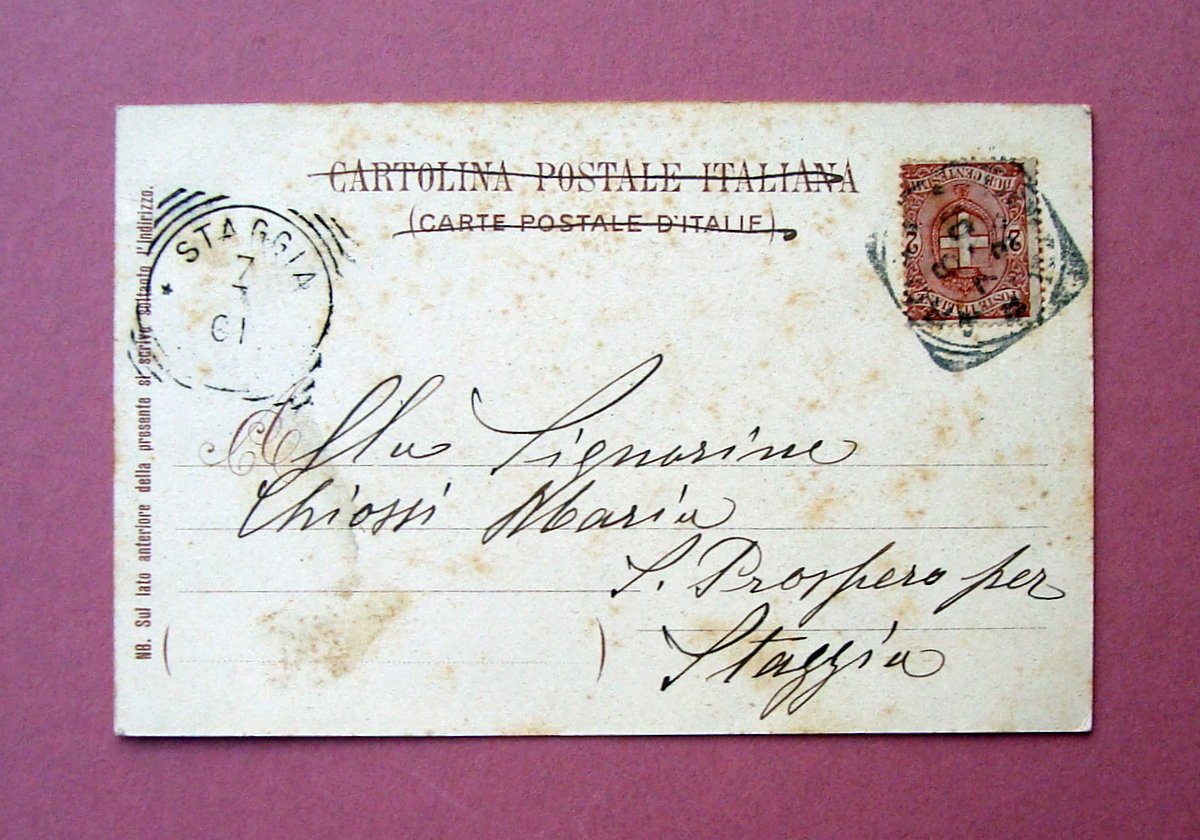 CARTOLINA POSTALE ITALIANA
(CARTE POSTALE D'ITALIE)
NB. Sul lato anteriore della presente si scrive soltanto l'indirizzo.
STAGGIA
7
01
DUE CENTESIMI
2 2
POSTE ITALIANE
Alla Signorine
Chiossi Maria
S. Prospero per
Staggia